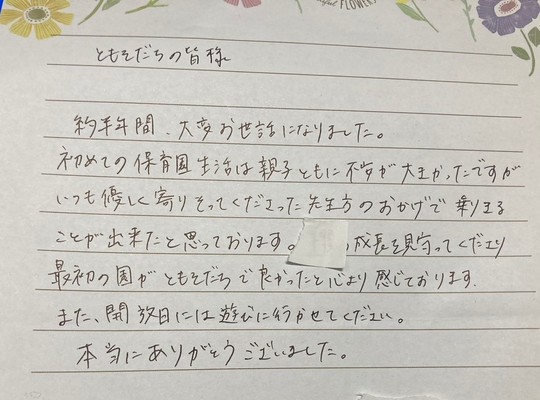 FLOWER
ともそだちの皆様
約半年間、大変お世話になりました。
初めての保育園生活は親子ともに不安が大きかったですが
いつも優しく寄りそってくださった先生方のおかげで乗りきる
ことが出来たと思っております。 成長を見守ってくださり
最初の園がともそだちで良かったと心より感じております。
また、開放日には遊びに行かせてください。
本当にありがとうございました。